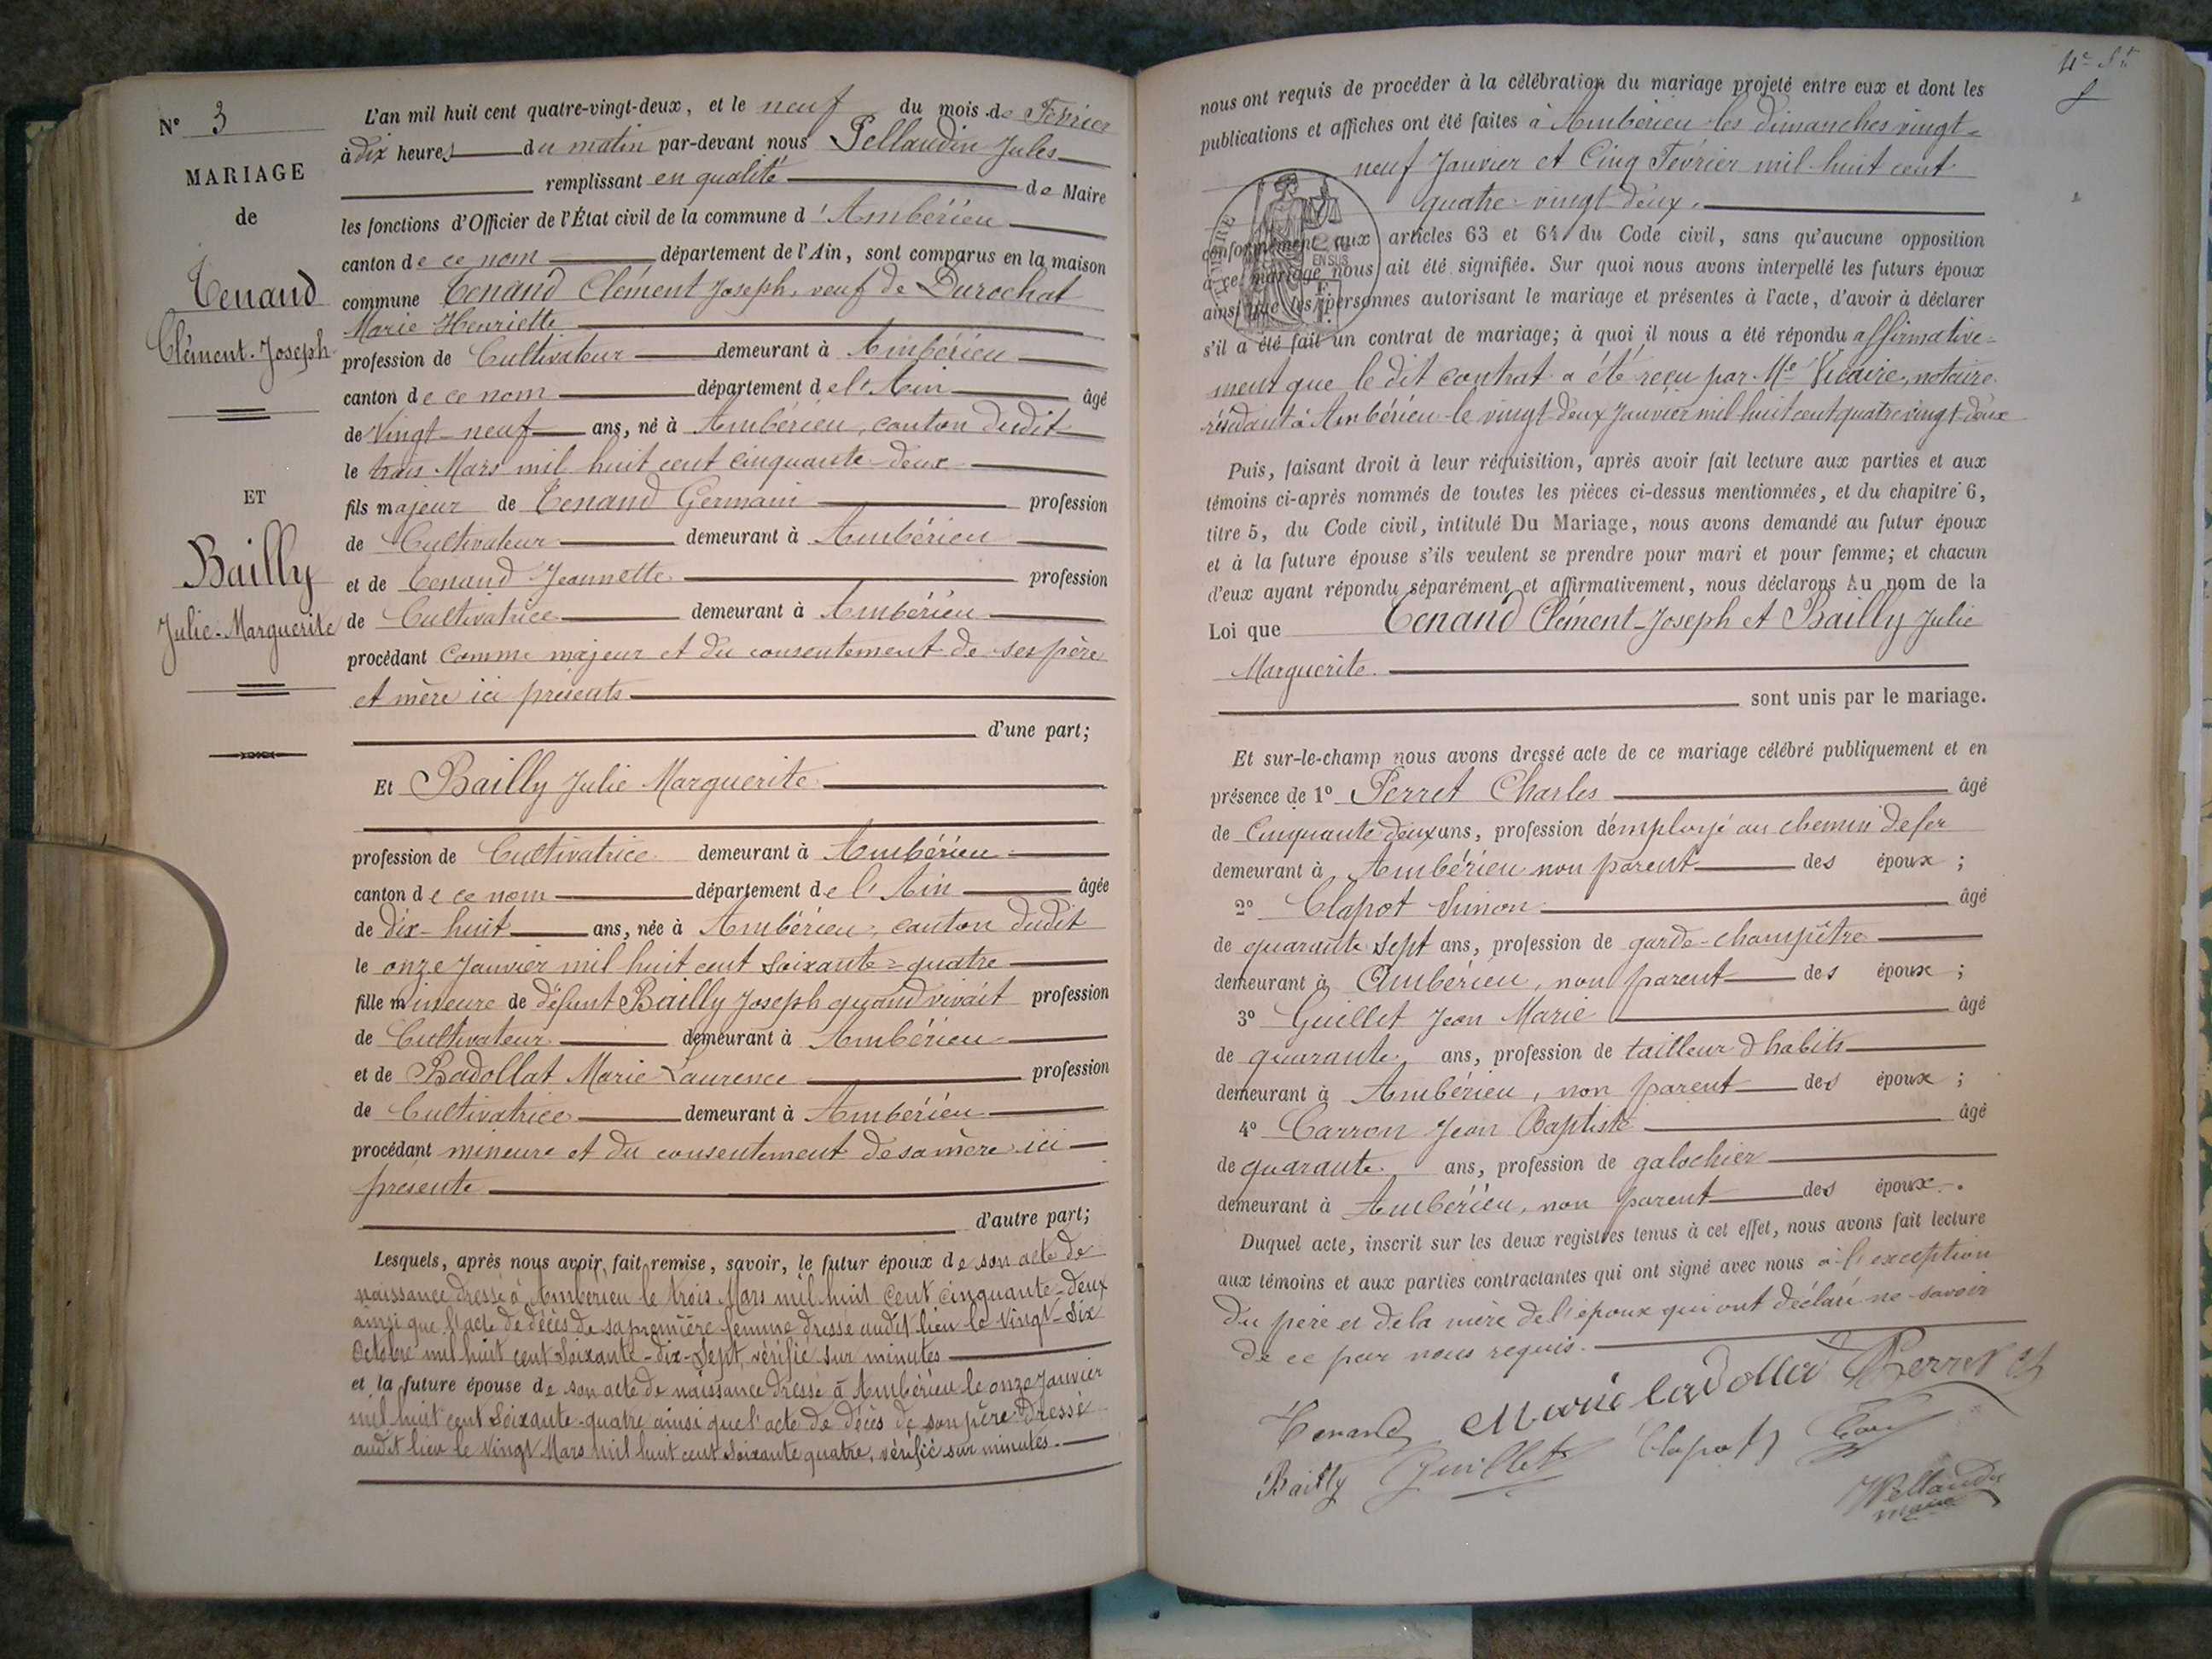 N° 3
MARIAGE
de
Tenand
Clément-Joseph
ET
Bailly
Julie-Marguerite
L'an mil huit cent quatre-vingt-deux, et le neuf du mois de Février
à dix heures du matin par-devant nous Pellaudin Jules
remplissant en qualité de Maire
les fonctions d'Officier de l'État civil de la commune d'Ambérieu
canton de ce nom département de l'Ain, sont comparus en la maison
commune Tenand Clément Joseph, veuf de Durochat
Marie Henriette
profession de Cultivateur demeurant à Ambérieu
canton de ce nom département de l'Ain âgé
de Vingt-neuf ans, né à Ambérieu, canton dudit
le trois Mars mil huit cent cinquante-deux
fils majeur de Tenand Germain profession
de Cultivateur demeurant à Ambérieu
et de Tenand Jeannette profession
de Cultivatrice demeurant à Ambérieu
procédant comme majeur et du consentement de ses père
et mère ici présents
d'une part;
Et Bailly Julie Marguerite
profession de Cultivatrice demeurant à Ambérieu
canton de ce nom département de l'Ain âgée
de Dix-huit ans, née à Ambérieu, canton dudit
le onze Janvier mil huit cent soixante=quatre
fille mineure de défunt Bailly Joseph quand vivait profession
de Cultivateur demeurant à Ambérieu
et de Badollat Marie Laurence profession
de Cultivatrice demeurant à Ambérieu
procédant mineure et du consentement de sa mère ici
présente
d'autre part;
Lesquels, après nous avoir fait remise, savoir, le futur époux de son acte de
naissance dressé à Ambérieu le trois Mars mil huit cent cinquante-deux
ainsi que l'acte de décès de sa première femme dressé audit lieu le Vingt-Six
Octobre mil huit cent Soixante-dix-Sept, vérifié sur minutes
et la future épouse de son acte de naissance dressé à Ambérieu le onze Janvier
mil huit cent Soixante-quatre ainsi que l'acte de décès de son père dressé
audit lieu le Vingt Mars mil huit cent soixante quatre, vérifié sur minutes.
nous ont requis de procéder à la célébration du mariage projeté entre eux et dont les
publications et affiches ont été faites à Ambérieu les dimanches vingt=
neuf Janvier et Cinq Février mil huit cent
quatre-vingt deux.
conformément aux articles 63 et 64 du Code civil, sans qu'aucune opposition
à ce mariage nous ait été signifiée. Sur quoi nous avons interpellé les futurs époux
ainsi que les personnes autorisant le mariage et présentes à l'acte, d'avoir à déclarer
s'il a été fait un contrat de mariage; à quoi il nous a été répondu affirmative=
ment que le dit contrat a été reçu par Me Vicaire, notaire
résidant à Ambérieu le vingt-deux Janvier mil huit cent quatre vingt deux
Puis, faisant droit à leur réquisition, après avoir fait lecture aux parties et aux
témoins ci-après nommés de toutes les pièces ci-dessus mentionnées, et du chapitre 6,
titre 5, du Code civil, intitulé Du Mariage, nous avons demandé au futur époux
et à la future épouse s'ils veulent se prendre pour mari et pour femme; et chacun
d'eux ayant répondu séparément et affirmativement, nous déclarons Au nom de la
Loi que Tenand Clément-Joseph et Bailly Julie
Marguerite.
sont unis par le mariage.
Et sur-le-champ nous avons dressé acte de ce mariage célébré publiquement et en
présence de 1° Perret Charles âgé
de Cinquante deux ans, profession d'employé au chemin de fer
demeurant à Ambérieu non parent des époux;
2° Clapot Simon âgé
de quarante sept ans, profession de garde-champêtre
demeurant à Ambérieu, non parent des époux;
3° Guillet Jean Marie âgé
de quarante ans, profession de tailleur d'habits
demeurant à Ambérieu, non parent des époux;
4° Carron Jean Baptiste âgé
de quarante ans, profession de galochier
demeurant à Ambérieu, non parent des époux.
Duquel acte, inscrit sur les deux registres tenus à cet effet, nous avons fait lecture
aux témoins et aux parties contractantes qui ont signé avec nous à l'exception
du père et de la mère de l'époux qui ont déclaré ne savoir
de ce par nous requis.
Tenand Marie badollat Perret Ch
Bailly Guillet Clapot
Pellaudin
maire